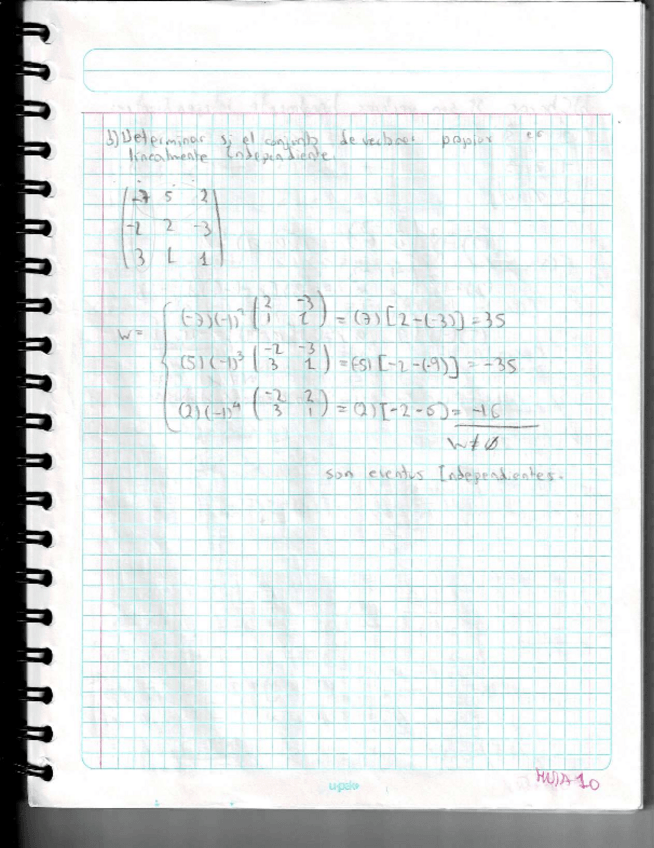 b) Determinar si el conjunto de vectores propios es
linealmente Independiente.
-7 5 2
-2 2 -3
3 1 1
W=
(-7)(-1)² (2 -3 / 1 1) = (7) [2-(-3)] = 35
(5)(-1)³ (-2 -3 / 3 1) = (-5) [-2-(-9)] = -35
(2)(-1)⁴ (-2 2 / 3 1) = (2) [-2-6] = -16
W≠0
son eventos Independientes.
HOJA 10